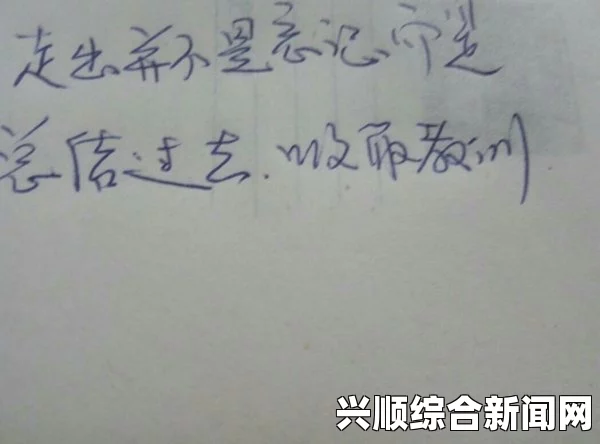 走出并不是忘记,而是
总结过去.吸取教训
兴顺综合新闻网